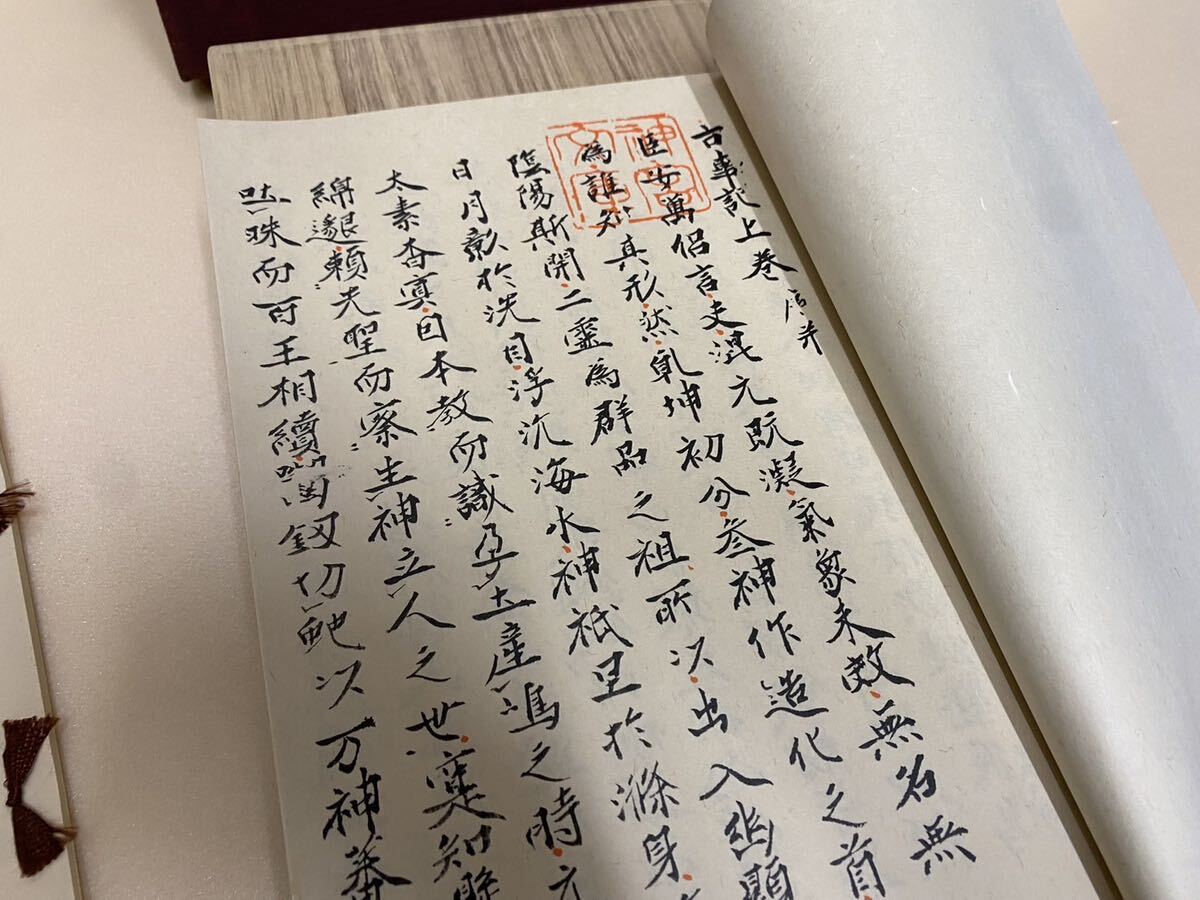 古事記上巻 序并
臣安萬侶言夫混元既凝氣象未效無名無
為誰知其形然乾坤初分参神作造化之首
陰陽斯開二霊為群品之祖所以出入幽顕
日月彰於洗目浮沉海水神祇呈於滌身
太素杳冥因本教而識孕土産嶋之時元
綿邈頼先聖而察生神立人之世寔知懸
吐珠而百王相續釼切虵以万神蕃
神宮文庫